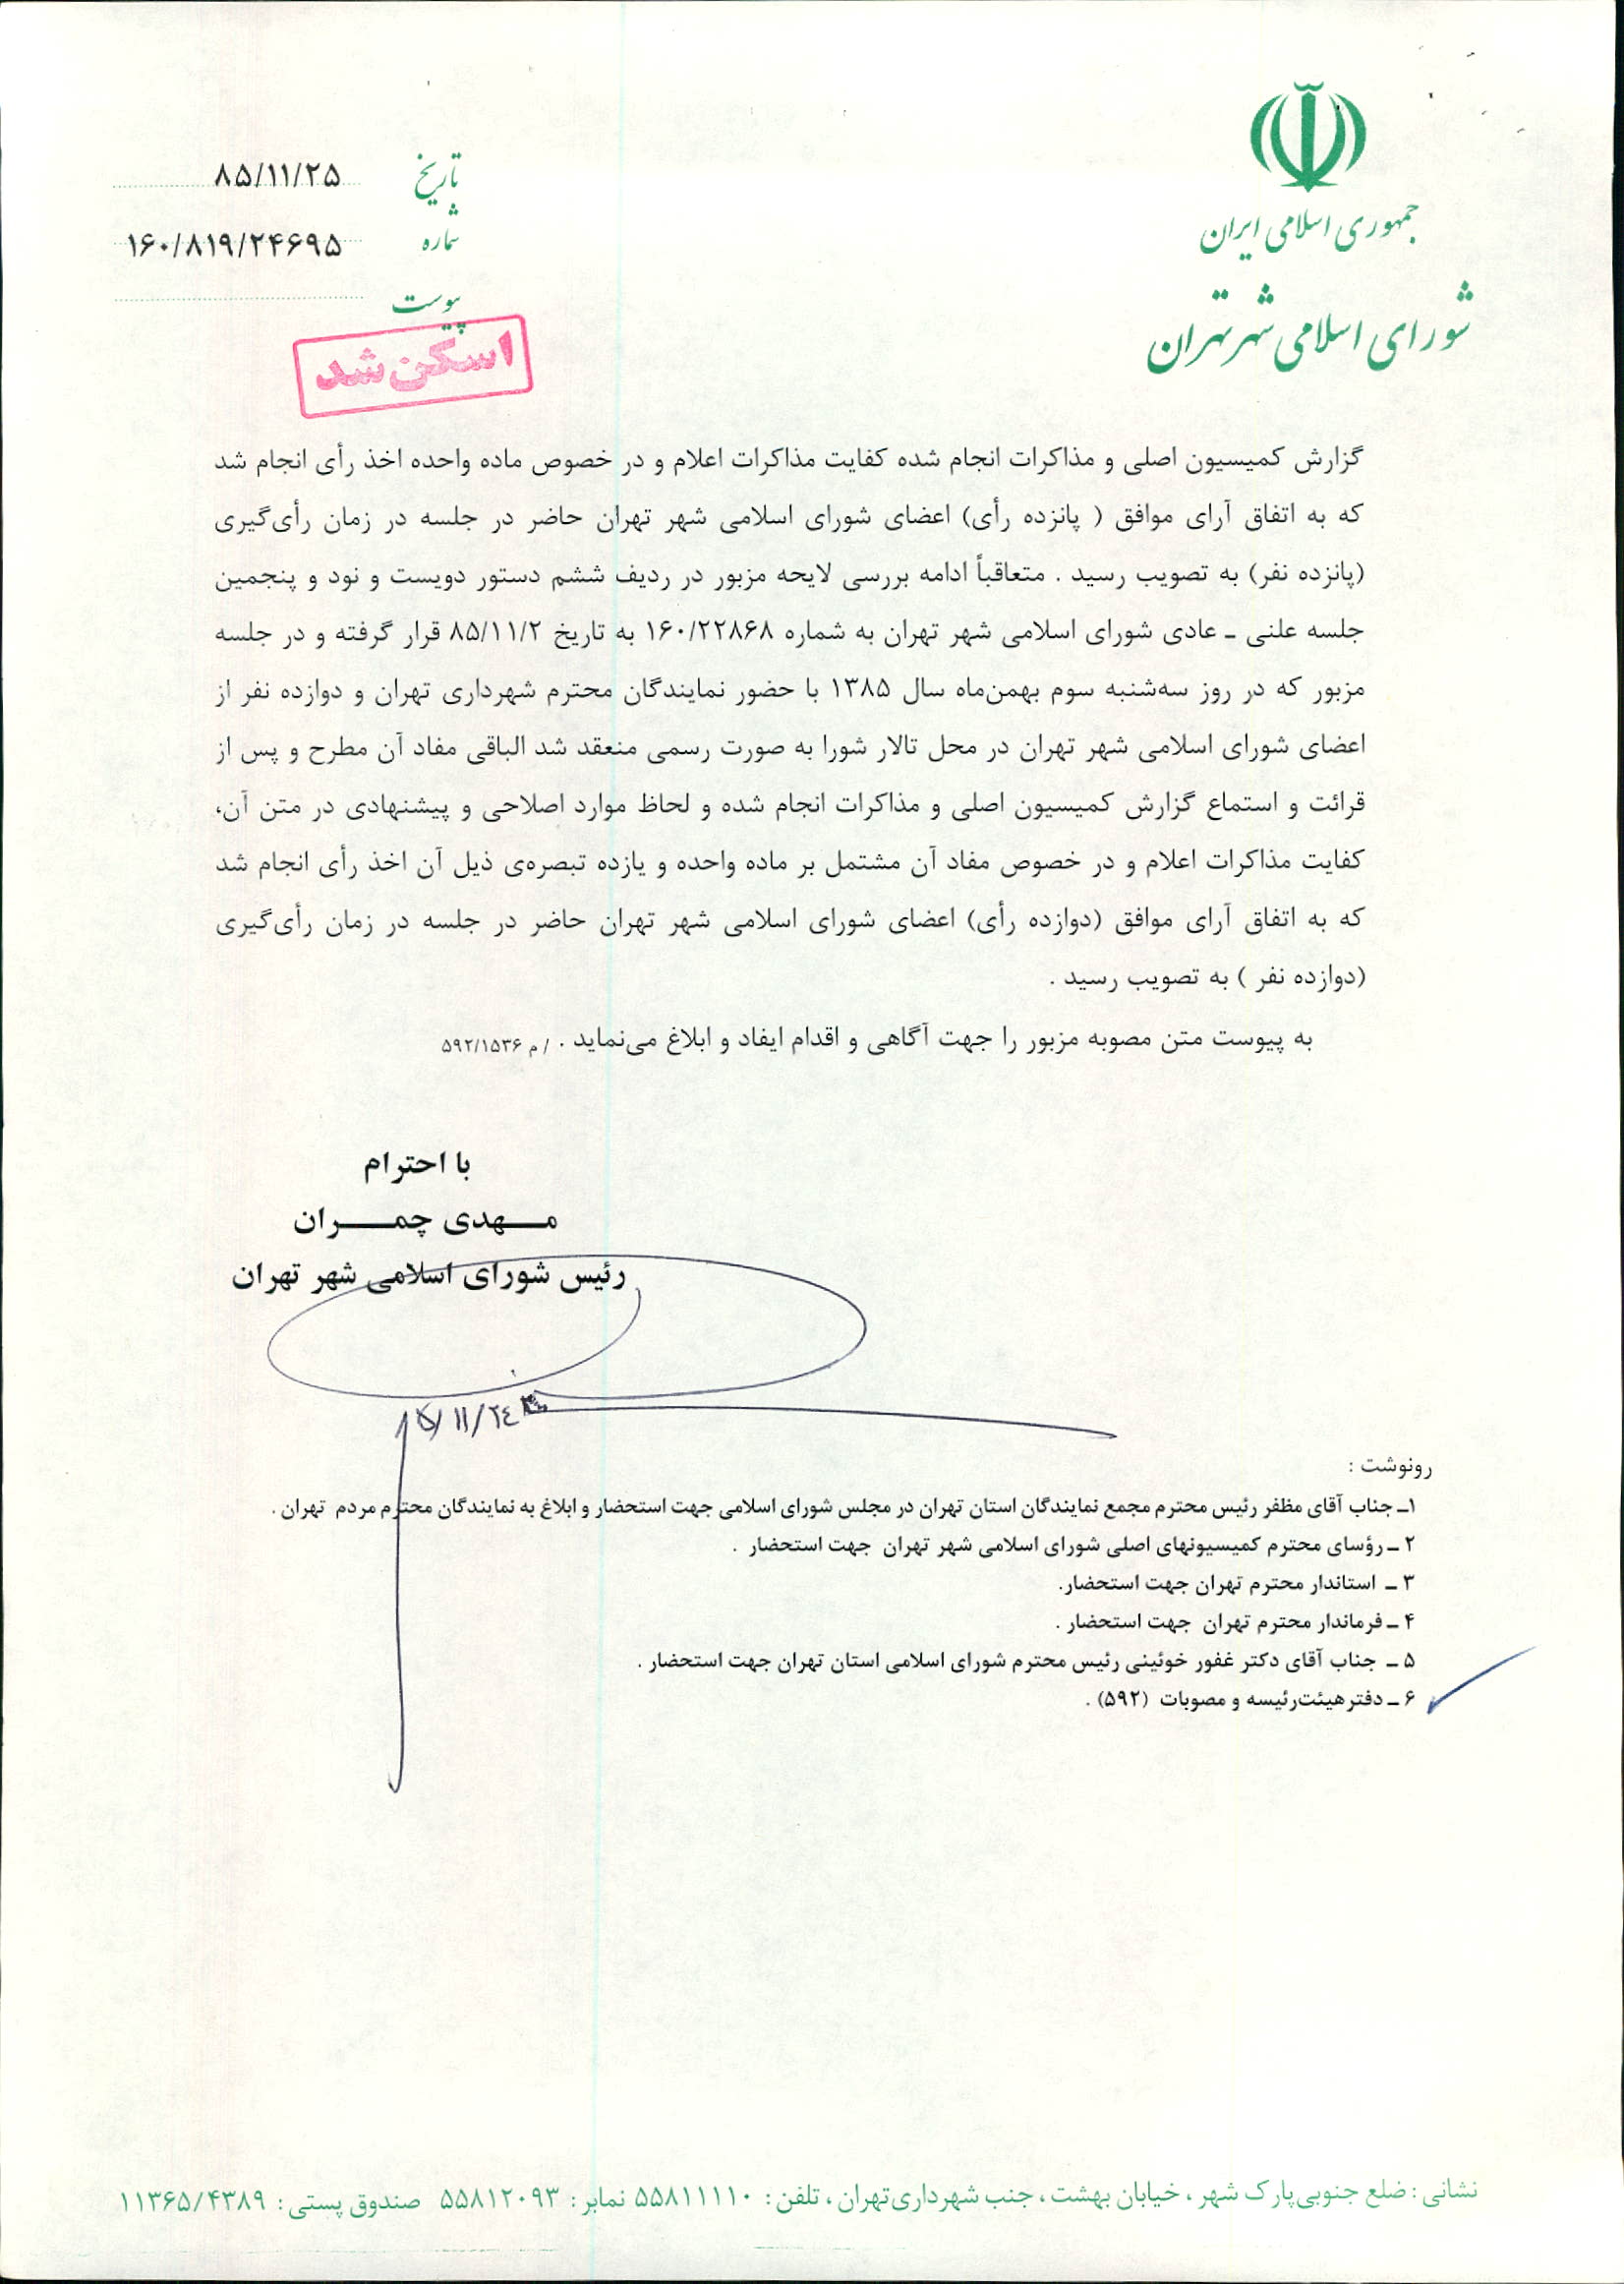 جمهوری اسلامی ایران
شورای اسلامی شهر تهران
تاریخ ۸۵/۱۱/۲۵
شماره ۱۶۰/۸۱۹/۲۴۶۹۵
پیوست
اسکن شد
گزارش کمیسیون اصلی و مذاکرات انجام شده کفایت مذاکرات اعلام و در خصوص ماده واحده اخذ رأی انجام شد
که به اتفاق آرای موافق ( پانزده رأی) اعضای شورای اسلامی شهر تهران حاضر در جلسه در زمان رأی‌گیری
(پانزده نفر) به تصویب رسید . متعاقباً ادامه بررسی لایحه مزبور در ردیف ششم دستور دویست و نود و پنجمین
جلسه علنی ـ عادی شورای اسلامی شهر تهران به شماره ۱۶۰/۲۲۸۶۸ به تاریخ ۸۵/۱۱/۲ قرار گرفته و در جلسه
مزبور که در روز سه‌شنبه سوم بهمن‌ماه سال ۱۳۸۵ با حضور نمایندگان محترم شهرداری تهران و دوازده نفر از
اعضای شورای اسلامی شهر تهران در محل تالار شورا به صورت رسمی منعقد شد الباقی مفاد آن مطرح و پس از
قرائت و استماع گزارش کمیسیون اصلی و مذاکرات انجام شده و لحاظ موارد اصلاحی و پیشنهادی در متن آن،
کفایت مذاکرات اعلام و در خصوص مفاد آن مشتمل بر ماده واحده و یازده تبصره‌ی ذیل آن اخذ رأی انجام شد
که به اتفاق آرای موافق (دوازده رأی) اعضای شورای اسلامی شهر تهران حاضر در جلسه در زمان رأی‌گیری
(دوازده نفر ) به تصویب رسید .
به پیوست متن مصوبه مزبور را جهت آگاهی و اقدام ایفاد و ابلاغ می‌نماید . / م ۵۹۲/۱۵۳۶
با احترام
مـــهدی چمـــران
رئیس شورای اسلامی شهر تهران
رونوشت :
۱ـ جناب آقای مظفر رئیس محترم مجمع نمایندگان استان تهران در مجلس شورای اسلامی جهت استحضار و ابلاغ به نمایندگان محترم مردم تهران .
۲ ـ رؤسای محترم کمیسیونهای اصلی شورای اسلامی شهر تهران جهت استحضار .
۳ ـ استاندار محترم تهران جهت استحضار.
۴ ـ فرماندار محترم تهران جهت استحضار .
۵ ـ جناب آقای دکتر غفور خوئینی رئیس محترم شورای اسلامی استان تهران جهت استحضار .
۶ ـ دفتر هیئت‌رئیسه و مصوبات (۵۹۲) .
نشانی : ضلع جنوبی پارک شهر ، خیابان بهشت ، جنب شهرداری تهران ، تلفن : ۵۵۸۱۱۱۱۰ نمابر : ۵۵۸۱۲۰۹۳ صندوق پستی : ۱۱۳۶۵/۴۳۸۹